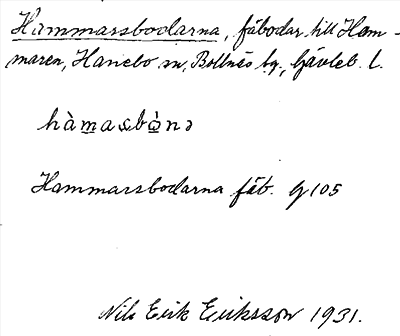 Hammarsbodarna, fäbodar till Ham-
maren, Hanebo sn, Bollnäs tg., Gävleb. l.
hàmasbònə
Hammarsbodarna fäb. G 105
Nils Erik Eriksson 1931.